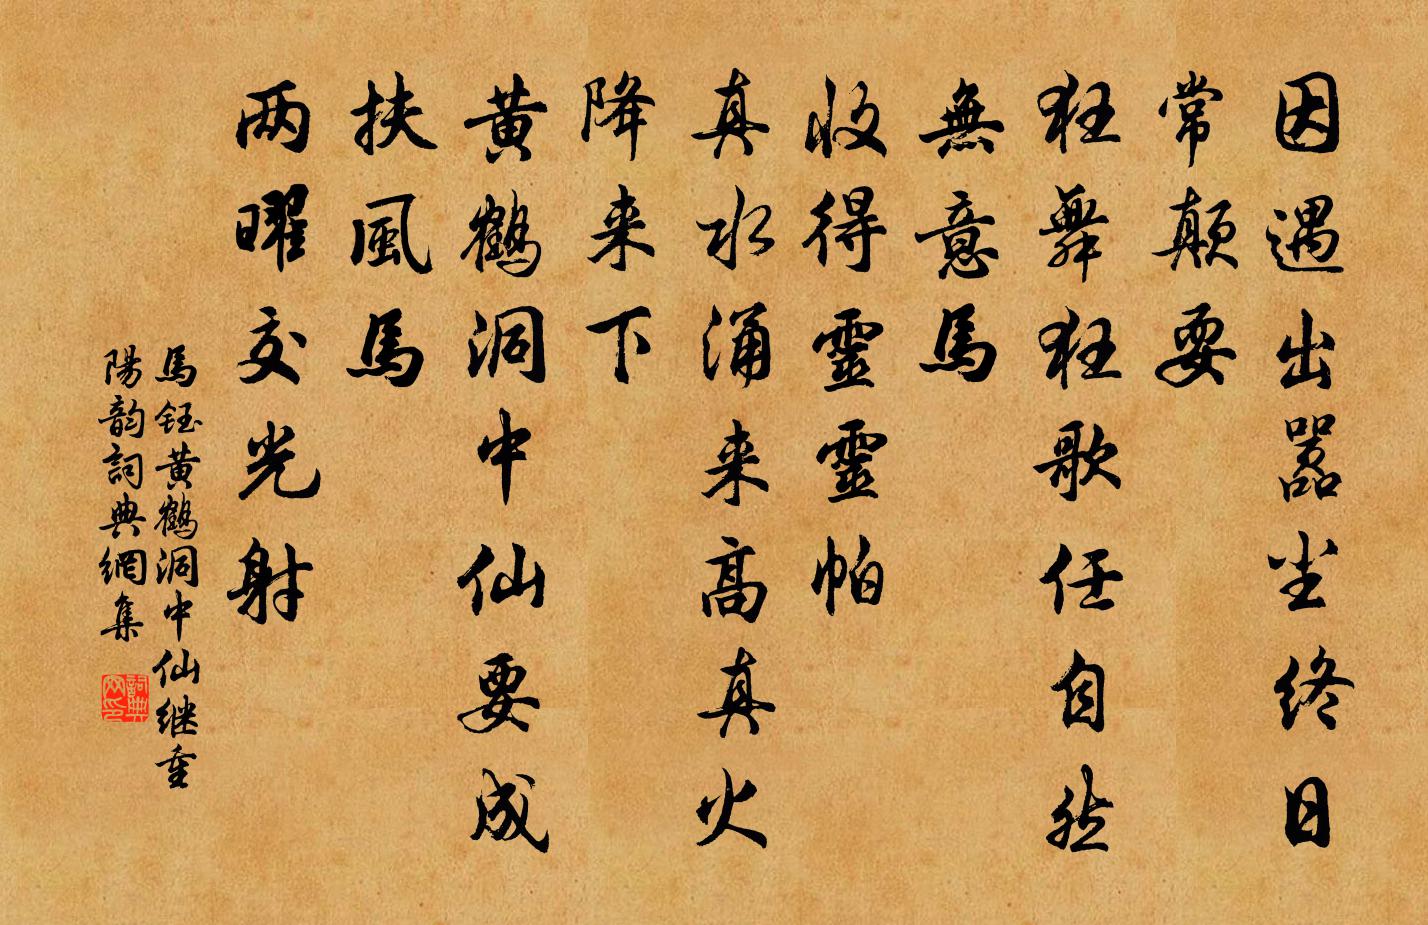 因遇出嚣尘终日
常颠耍
狂舞狂歌任自然
無意馬
收得靈靈帕
真水涌来高真火
降来下
黄鹤洞中仙要成
扶風馬
两曜交光射
馬钰黄鹤洞中仙继重
陽韵詞典網集
詞典
网印